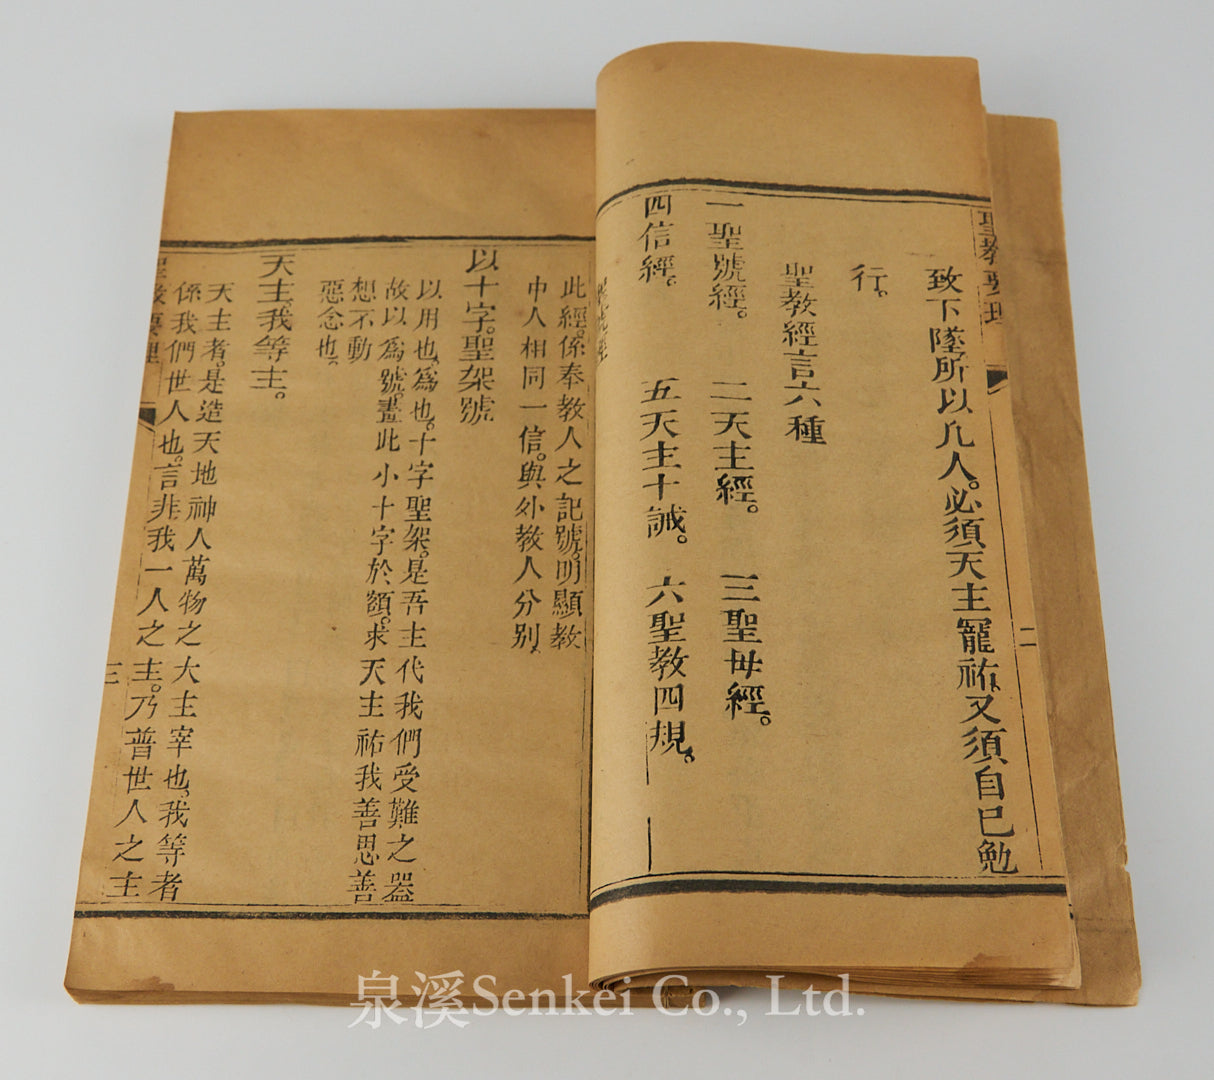 聖教要理
致下墜所以凡人。必須天主寵祐、又須自已勉
行。
聖教經言六種
一聖號經。 二天主經。 三聖母經。
四信經。 五天主十誡。 六聖教四規。
二
此經。係奉教人之記號。明顯教
中人相同一信。與外教人分別、
以十字。聖架號
以用也。爲也。十字聖架。是吾主代我們受難之器
故以爲號。畫此小十字於額。求天主祐我善思善
想不動
惡念也、
天主。我等主。
天主者。是造天地神人萬物之大主宰也。我等者
係我們世人也。言非我一人之主。乃普世人之主
聖教要理
三
泉溪Senkei Co., Ltd.